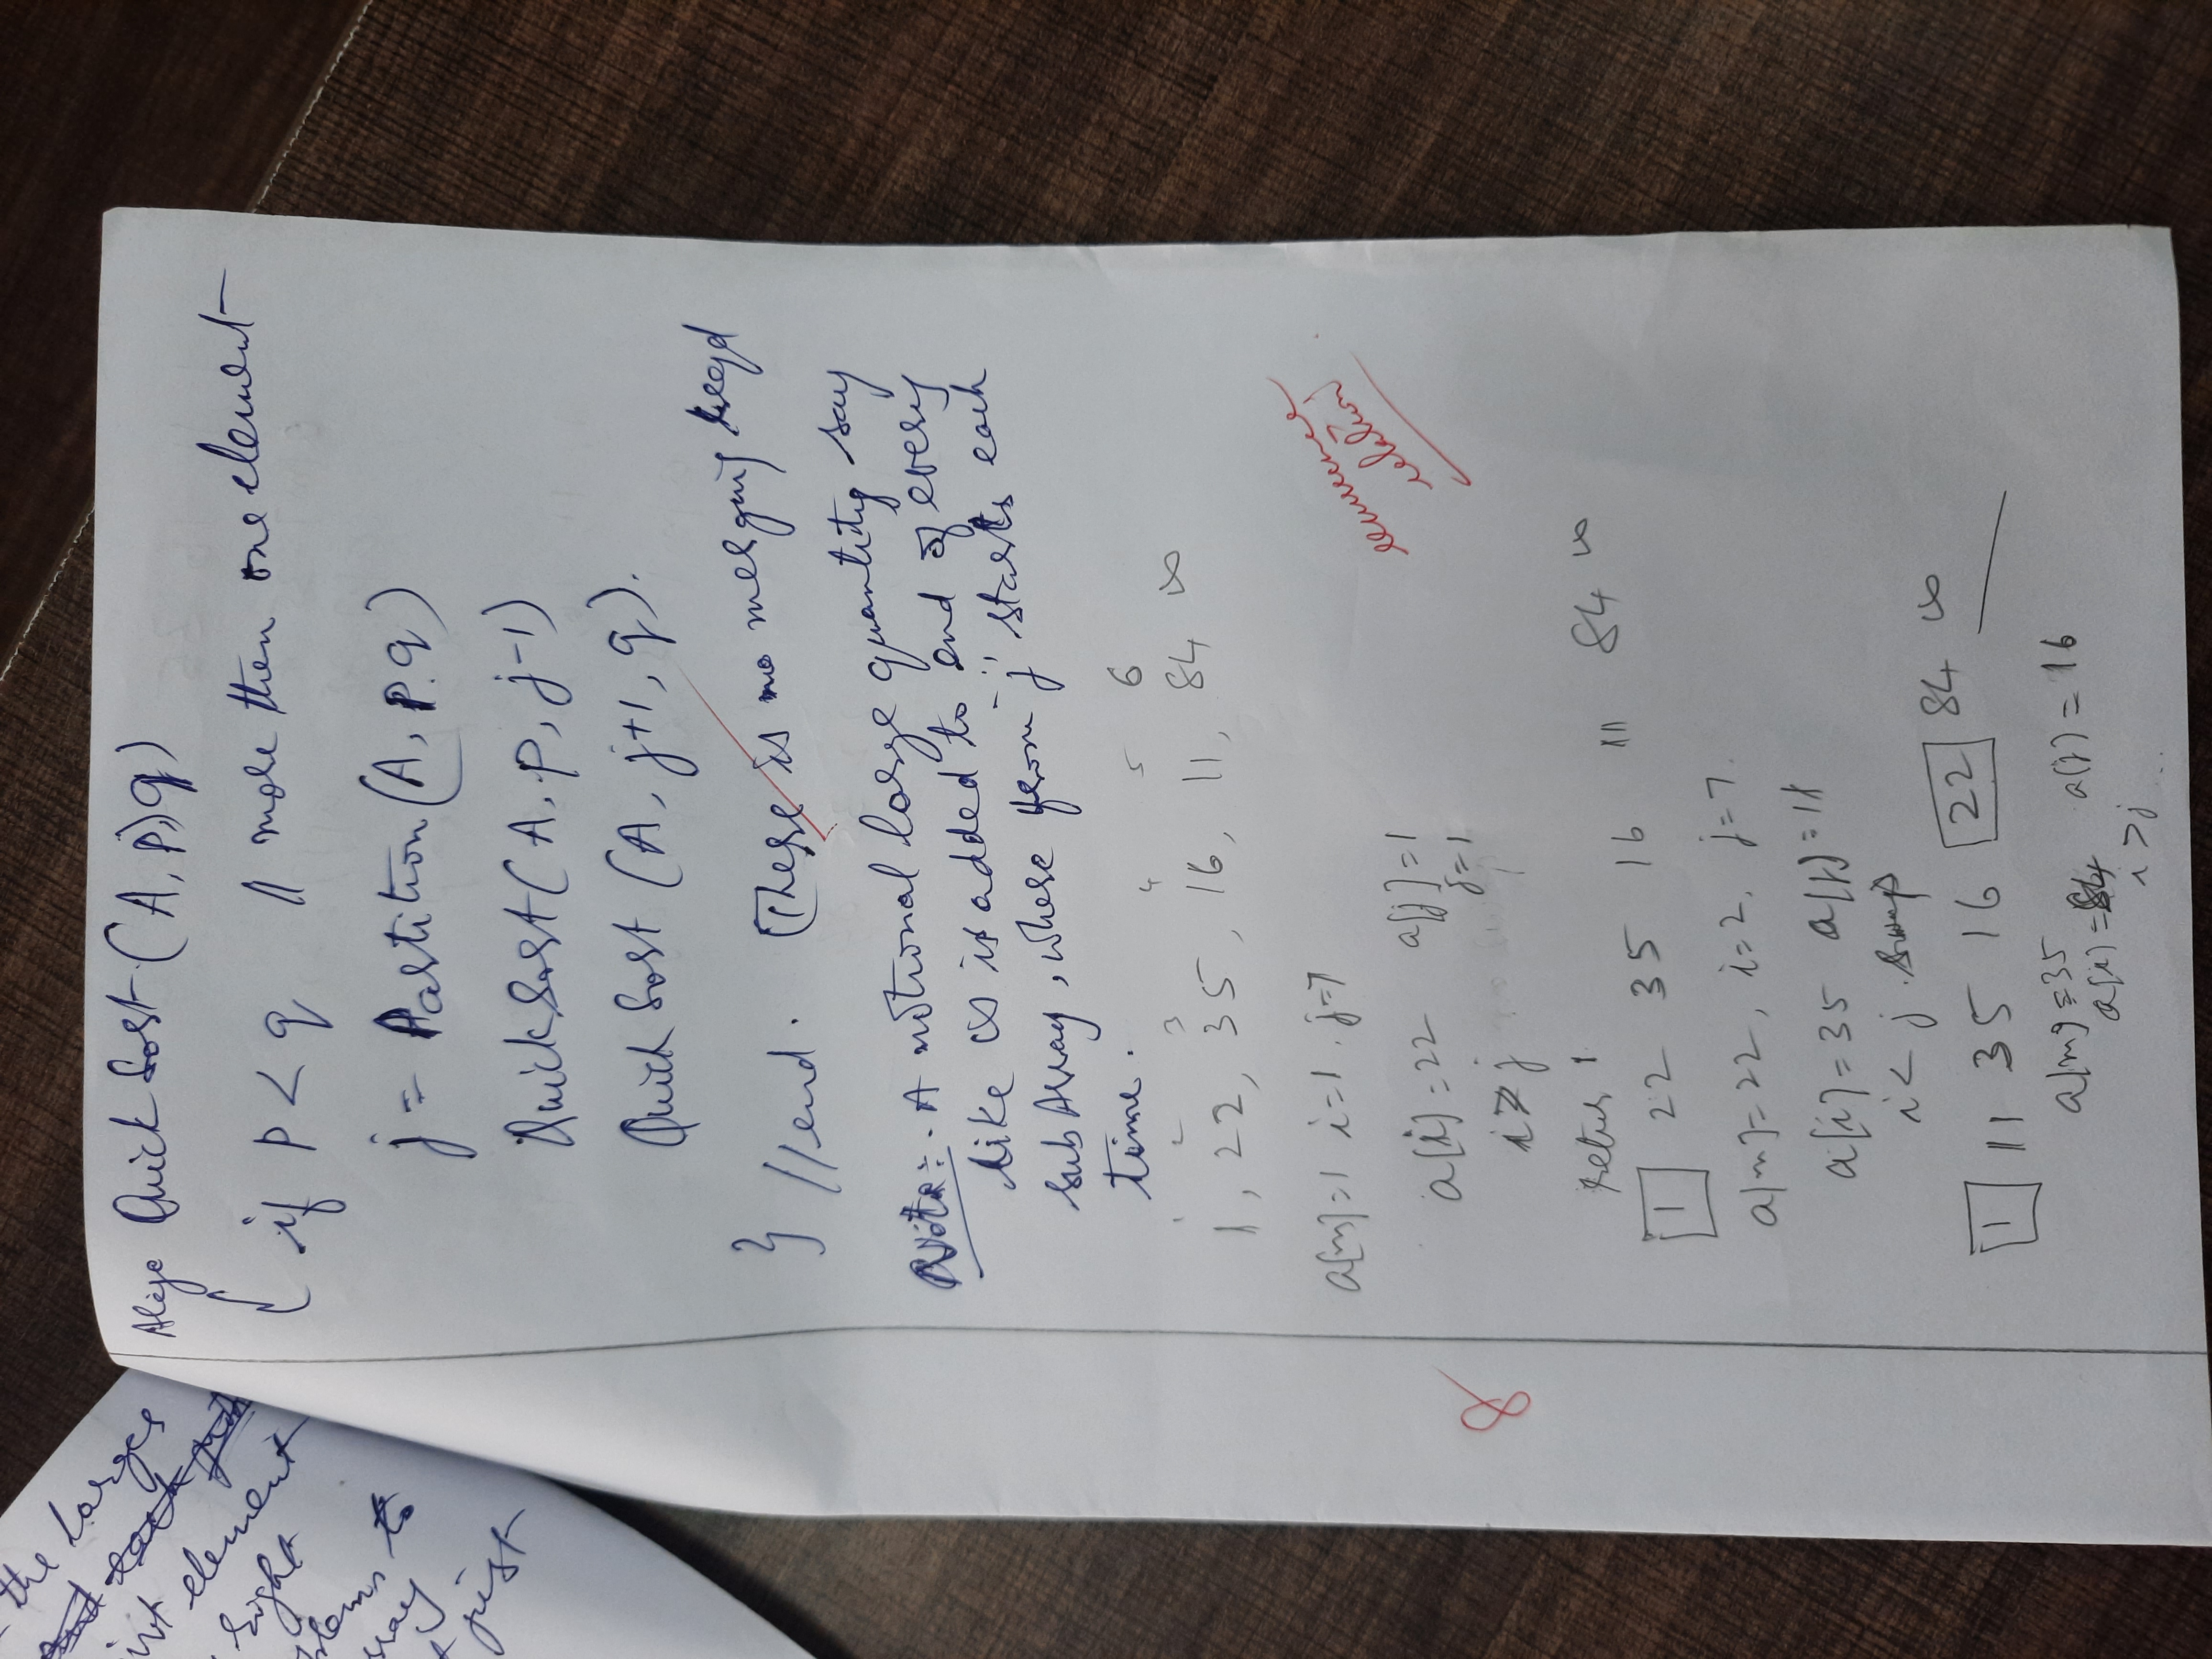 the larges
and each
element
right
to
just
Algo QuickSort (A, p, q)
{ if p < q // more then one element
j = Partition (A, p q)
QuickSort (A, p, j-1)
QuickSort (A, j+1, q).
} // end. (There is no merging reqd
Note:- A notional large quantity say
like ∞ is added to end of every
subArray, where from 'j' starts each
time.
1 2 3 4 5 6
1, 22, 35, 16, 11, 84 ∞
a[m]=1 i=1. j=7
a[i]=22 a[j]=1
j=1
i>j
recurrence
relation
8
1
1 22 35 16 11 84 ∞
a[m]=22, i=2, j=7.
a[i]=35 a[j]=11
i< j. Swap
1 11 35 16 22 84 ∞
a[m]=35
a[i]=84 a[j]=16
i>j